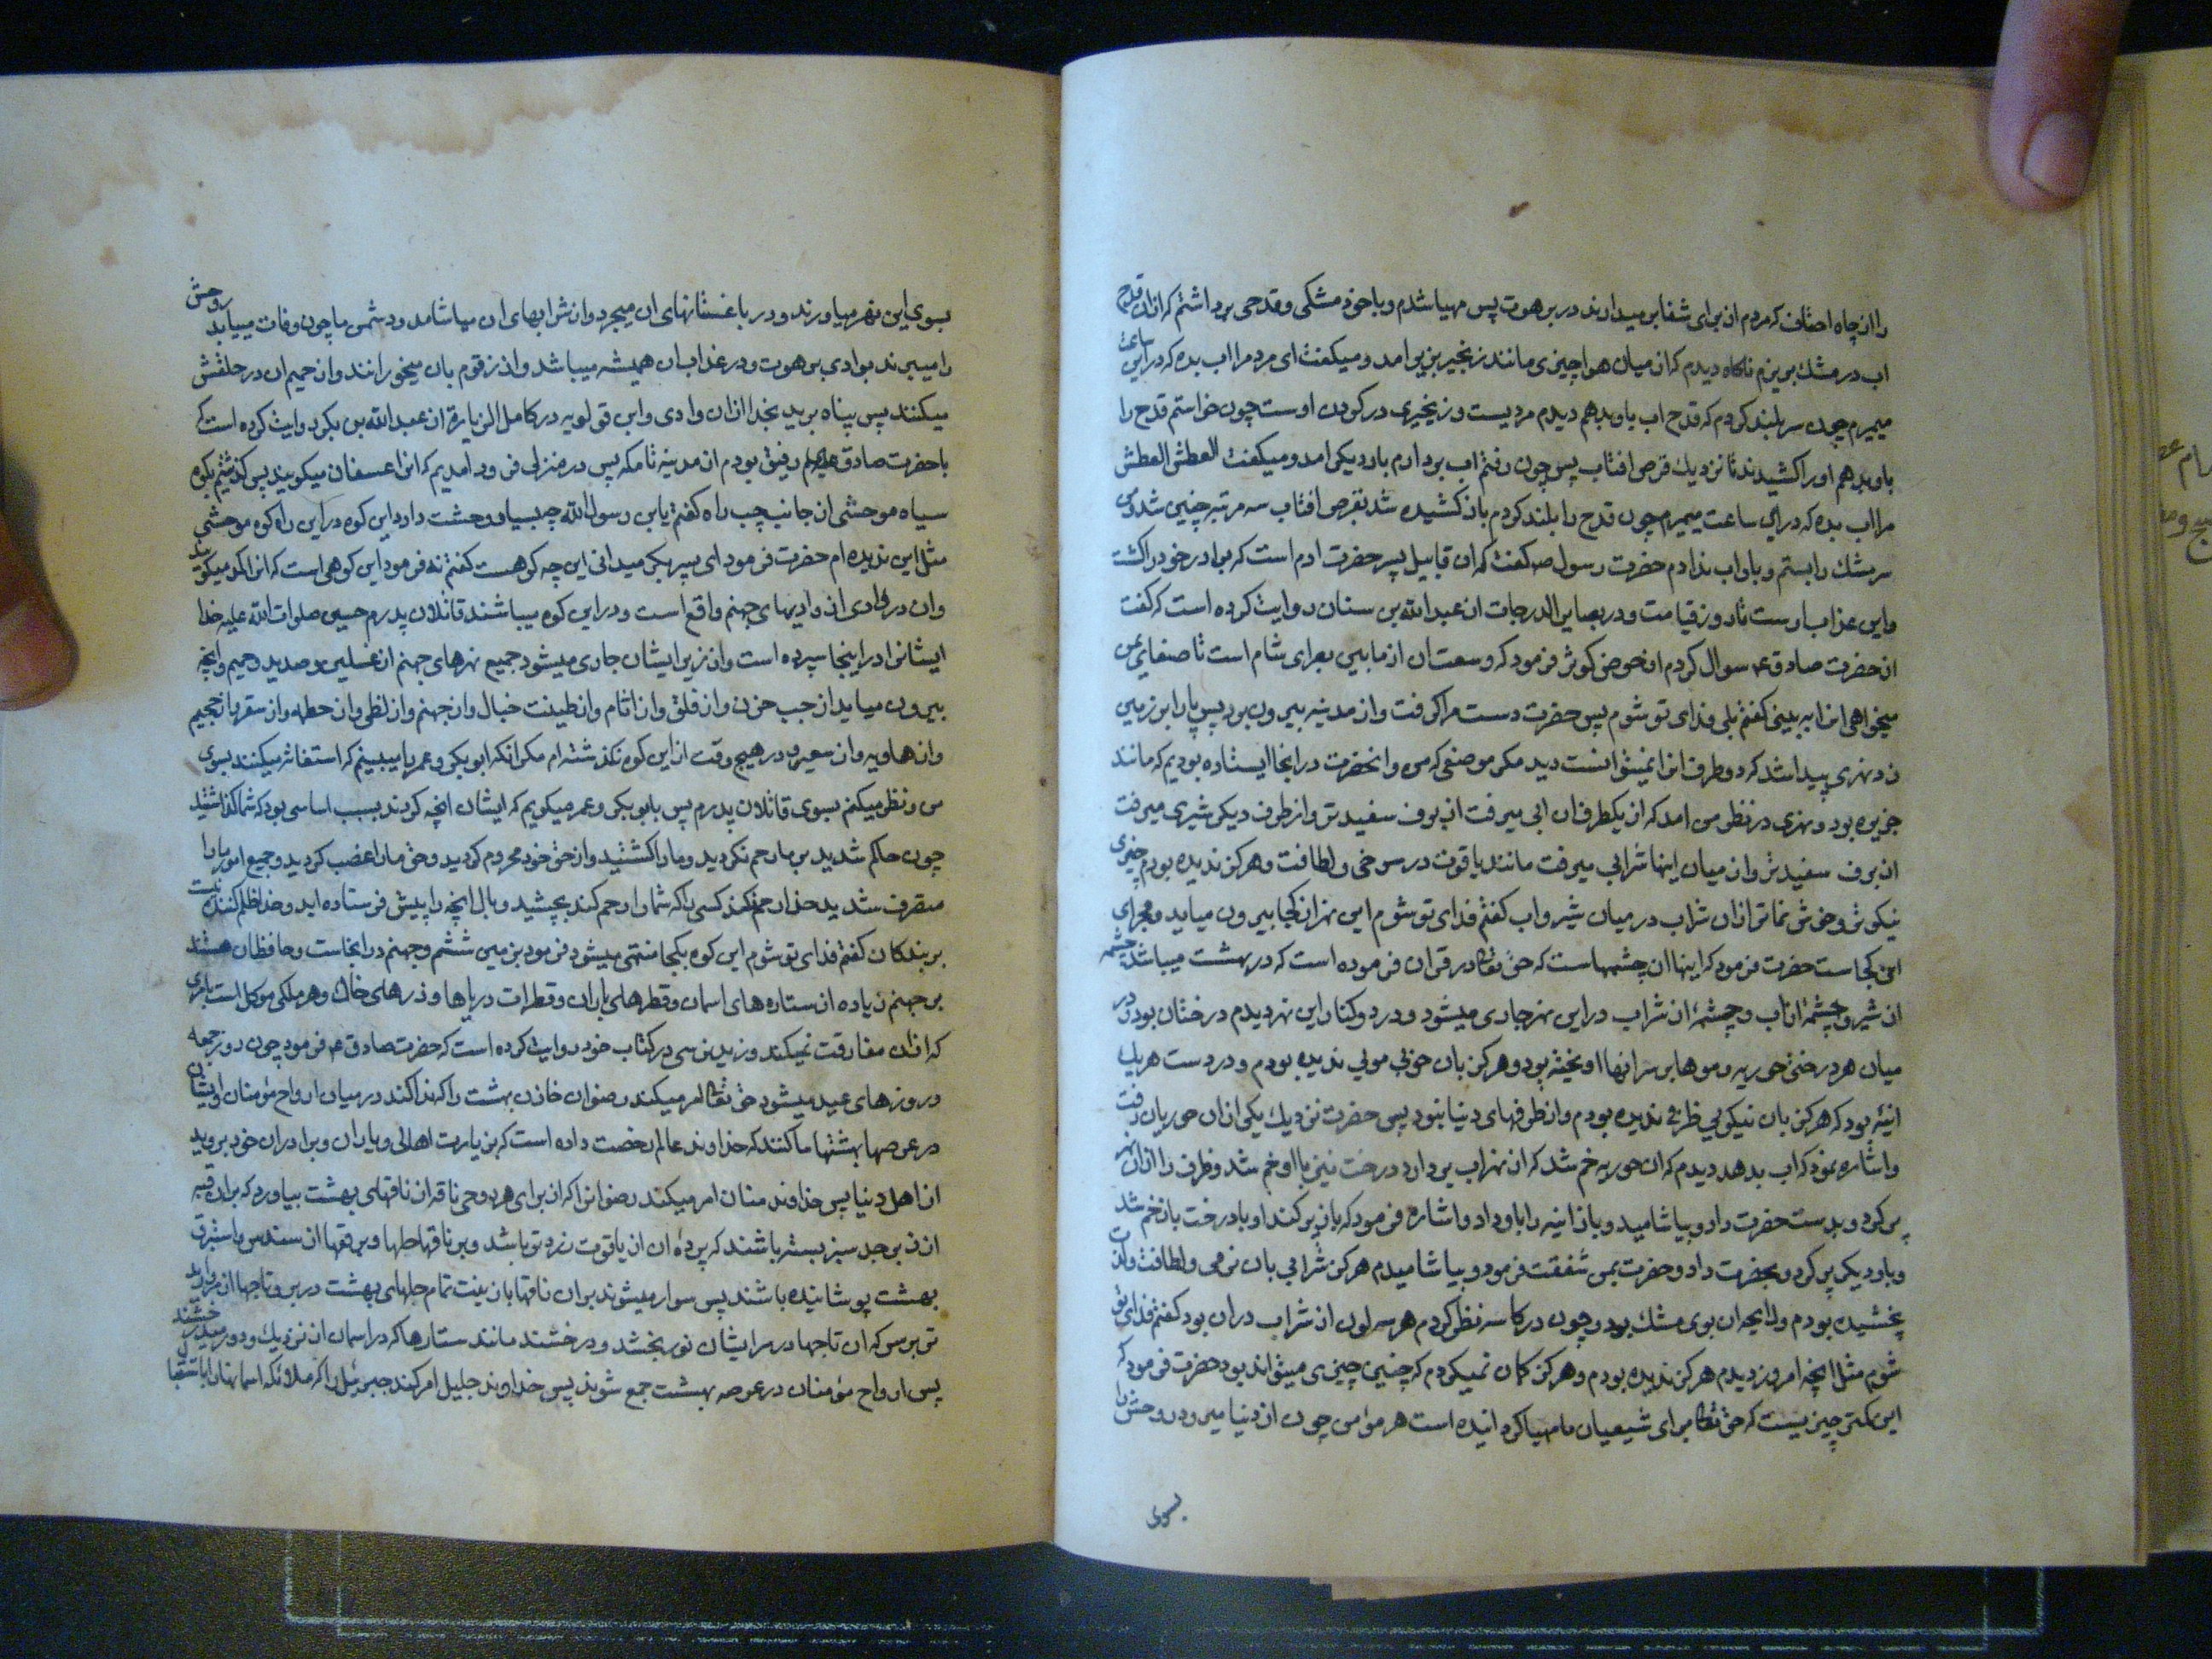 را از چاه احقاف که مردم از برای شفا بر میدارند در برهوت پس مهیا شدم و با خود مشکی و قدحی برداشتم که از ان قدح
اب در مشك بریزم ناکاه دیدم که از میان هوا چیزی مانند زنجیر بزیر امد و میکفت ای مرد مرا اب بده که در این ساعت
میمیرم چون سر بلند کردم که قدح اب باو بدهم دیدم مردیست و زنجیری در کردن اوست چون خواستم قدح را
باو بدهم او را کشیدند تا نزدیك قرص افتاب پس چون رفتم اب بردارم بار دیکر امد و میکفت العطش العطش
مرا اب بده که در این ساعت میمیرم چون قدح را بلند کردم باز کشیده شد بقرص افتاب سه مرتبه چنین شد و من
سر مشك را بستم و باو اب ندادم حضرت رسول ص کفت که ان قابیل پسر حضرت ادم است که برادر خود را کشت
و این عذاب اوست تا روز قیامت و در بصایر الدرجات از عبد الله بن سنان روایت کرده است که کفت
از حضرت صادق ع سوال کردم از حوض کوثر فرمود که وسعت ان از ما بین بصرای شام است تا صنعای یمن
میخواهی انرا به بینی کفتم بلی فدای تو شوم پس حضرت دست مرا کرفت و از مدینه بیرون برد پس پا را بر زمین
زد نهری پیدا شد که دو طرف انرا نمیتوانست دید مکر موضعی که من و انحضرت در انجا ایستاده بودیم که مانند
جزیره بود و نهری در نظر من امد که از یکطرف ان ابی میرفت از برف سفیدتر و از طرف دیکر شیری میرفت
از برف سفیدتر و از میان اینها شرابی میرفت مانند یاقوت در سرخی و لطافت و هرکز ندیده بودم چیزی
نیکوتر و خوش نماتر از ان شراب در میان شیر و اب کفتم فدای تو شوم این نهر از کجا بیرون میاید و مجرای
این کجاست حضرت فرمود که اینها ان چشمهاست که حق تعالی در قران فرموده است که در بهشت میباشد چشمه
از شیر و چشمه از اب و چشمه از شراب در این نهر جاری میشود و در دو کنار این نهر دیدم درختان بود و در
میان هر درختی حوریه و موها بر سر انها اویخته بود و هرکز بان خوبی موئی ندیده بودم و در دست هر یك
انیه بود که هرکز بان نیکویی ظرفی ندیده بودم و از ظرفهای دنیا نبود پس حضرت نزدیك یکی از ان حوریان رفت
و اشاره نمود که اب بدهد دیدم که ان حوریه خم شد که از نهر اب بردارد درخت نیز با او خم شد و ظرف را از ان نهر
پر کرد و بدست حضرت داد و بیاشامید و باز انیه را باو داد و اشاره فرمود که باز پر کند او با درخت باز خم شد
و بار دیکر پر کرد و بحضرت داد و حضرت بمن شفقت فرمود و بیاشامیدم هرکز شرابی بان نرمی و لطافت و لذت
نچشیده بودم و رایحه ان بوی مشك بود و چون در کاسه نظر کردم هر سه لون از شراب دران بود کفتم فدای تو
شوم مثل انچه امروز دیدم هرکز ندیده بودم و هرکز کمان نمیکردم که چنین چیزی میتواند بود حضرت فرمود که
این کمتر چیزیست که حق تعالی برای شیعیان ما مهیا کردانیده است هر مؤمن چون از دنیا میرود روحش را
بسوی
بسوی این نهر میاورند و در باغستانهای ان میچرد و از شرابهای ان میاشامد و دشمن ما چون وفات مییابد روحش
را میبرند بوادی برهوت و در عذاب ان همیشه میباشد و از زقوم بان میخورانند و از حمیم ان در حلقش
میکنند پس پناه برید بخدا از ان وادی و ابن قولویه در کامل الزیاره از عبد الله بن بکر روایت کرده است که
با حضرت صادق علیه السلم رفیق بودم از مدینه تا مکه پس در منزلی فرود امدیم که انرا عسفان میکویند پس کذشتیم بکوه
سیاه موحشی از جانب چپ راه کفتم یابن رسول الله چه بسیار وحشت دارد این کوه در این راه کوه موحشی
مثل این ندیده ام حضرت فرمود ای پسر بکر میدانی این چه کوهست کفتم نه فرمود این کوهی است که انرا کمد میکویند
و ان در وادی از وادیهای جهنم واقع است و در این کوه میباشند قاتلان پدرم حسین صلوات الله علیه خدا
ایشانرا در اینجا سپرده است و از زیر ایشان جاری میشود جمیع نهرهای جهنم از غسلین و صدید و حمیم و انچه
بیرون میاید از جب حزن و از فلق و از اثام و از طینت خبال و از جهنم و از لظی و از حطمه و از سقر و از جحیم
و از هاویه و از سعیر و در هیچ وقت از این کوه نکذشته ام مکر انکه ابوبکر و عمر را میبینم که استغاثه میکنند بسوی
من و نظر میکنم بسوی قاتلان پدرم پس بابوبکر و عمر میکویم که ایشان انچه کردند بسبب اساسی بود که شما کذاشتید
چون حاکم شدید بر ما رحم نکردید و ما را کشتید و از حق خود محروم کردید و حق ما را غصب کردید و جمیع امور ما را
متصرف شدید خدا رحم نکند کسی را که شما را رحم کند بچشید وبال انچه را پیش فرستاده اید و خدا ظلم کننده نیست
بر بندکان کفتم فدای تو شوم این کوه بکجا منتهی میشود فرمود بزمین ششم و جهنم در انجاست و حافظان هستند
بر جهنم زیاده از ستاره های اسمان و قطرهای باران و قطرات دریاها و ذرهای خاك و هر ملکی موکل است بامری
که از ان مفارقت نمیکند و زید نرسی در کتاب خود روایت کرده است که حضرت صادق ع فرمود چون روز جمعه
و روزهای عید میشود حق تعالی امر میکند رضوان خازن بهشت را که ندا کند در میان ارواح مؤمنان و ایشان
در عرصها بهشتها ساکنند که خداوند عالم رخصت داده است که بزیارت اهالی و یاران و برادران خود بروید
از اهل دنیا پس خداوند منان امر میکند رضوانرا که از برای هر روحی ناقه از ناقهای بهشت بیاورد که بران قبه
از زبرجد سبز بسته باشند که پرده ان از یاقوت زرد تر باشد و بر ناقها حلها و برقعها از سندس و استبرق
بهشت پوشانیده باشند پس سوار میشوند بران ناقها با زینت تمام حلهای بهشت در بر و تاجها از مروارید
تر بر سر که ان تاجها در سر ایشان نور بخشد و درخشند مانند ستارها که در اسمان از نزدیك و دور میدرخشند
پس ارواح مؤمنان در عرصه بهشت جمع شوند پس خداوند جلیل امر کند جبرئیل را که ملائکه اسمانها را باستقبال